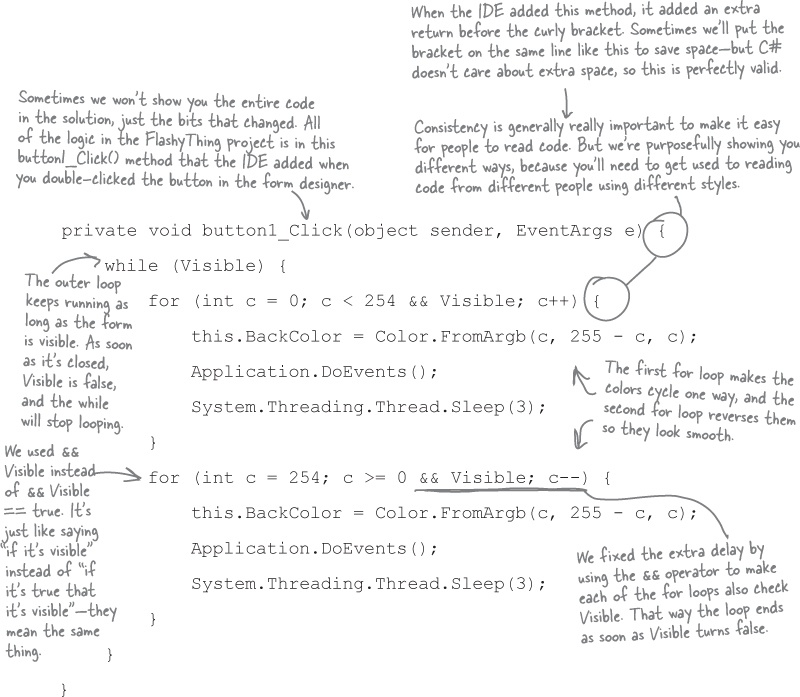 When the IDE added this method, it added an extra
return before the curly bracket. Sometimes we'll put the
bracket on the same line like this to save space—but C#
doesn't care about extra space, so this is perfectly valid.
Sometimes we won't show you the entire code
in the solution, just the bits that changed. All
of the logic in the FlashyThing project is in this
button1_Click() method that the IDE added when
you double-clicked the button in the form designer.
Consistency is generally really important to make it easy
for people to read code. But we're purposefully showing you
different ways, because you'll need to get used to reading
code from different people using different styles.
private void button1_Click(object sender, EventArgs e) {
while (Visible) {
The outer loop
keeps running as
long as the form
is visible. As soon
as it's closed,
Visible is false,
and the while
will stop looping.
for (int c = 0; c < 254 && Visible; c++) {
this.BackColor = Color.FromArgb(c, 255 - c, c);
Application.DoEvents();
System.Threading.Thread.Sleep(3);
}
The first for loop makes the
colors cycle one way, and the
second for loop reverses them
so they look smooth.
We used &&
Visible instead
of && Visible
== true. It's
just like saying
"if it's visible"
instead of "if
it's true that
it's visible"—they
mean the same
thing.
for (int c = 254; c >= 0 && Visible; c--) {
this.BackColor = Color.FromArgb(c, 255 - c, c);
Application.DoEvents();
System.Threading.Thread.Sleep(3);
}
We fixed the extra delay by
using the && operator to make
each of the for loops also check
Visible. That way the loop ends
as soon as Visible turns false.
}
}